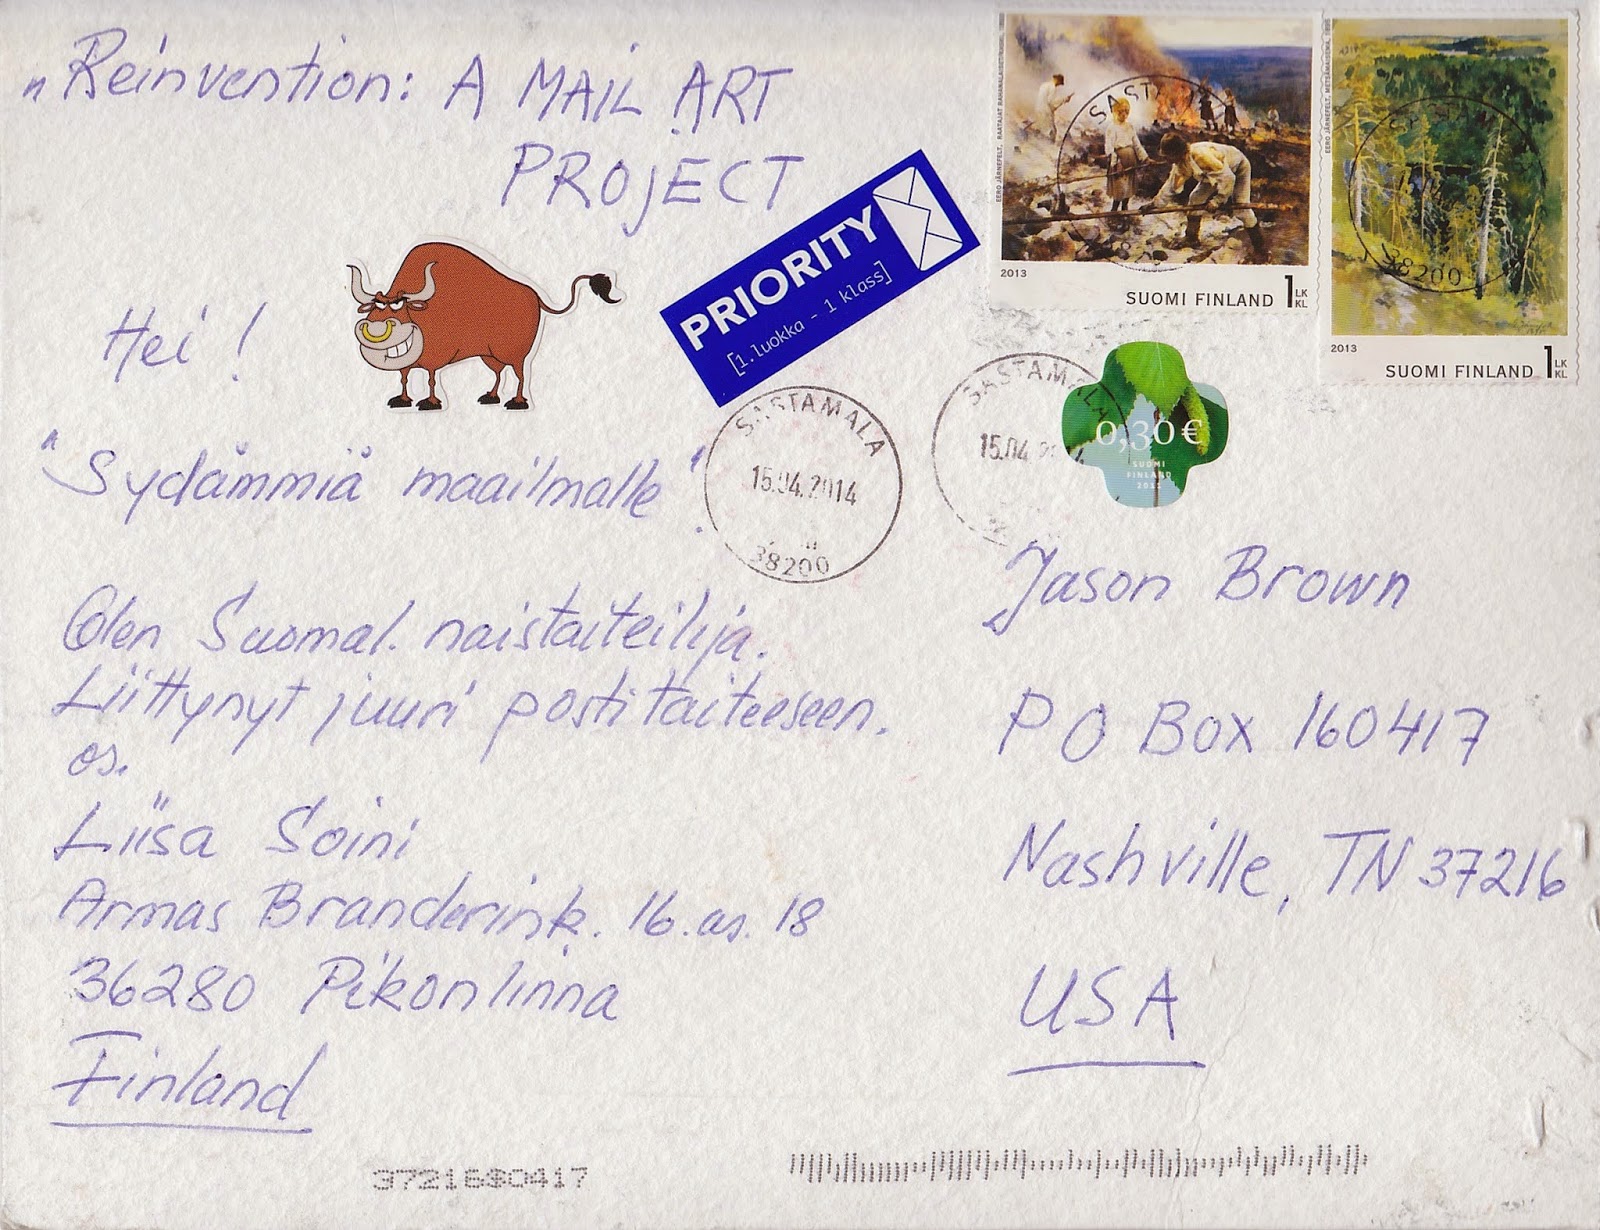 „Reinvention: A MAIL ART
PROJECT
Hei!
"Sydämmiä maailmalle".
Olen Suomal. naistaiteilija.
Liittynyt juuri postitaiteeseen.
os.
Liisa Soini
Armas Branderink. 16. as. 18
36280 Pikonlinna
Finland
PRIORITY
[1.luokka - 1 klass]
EERO JÄRNEFELT, RAATAJAT RAHANALAISET
2013
SUOMI FINLAND 1 LK
KL
EERO JÄRNEFELT, METSÄMAISEMA, 1895
2013
SUOMI FINLAND 1 LK
KL
SASTAMALA
38200
SASTAMALA
15.04.2014
38200
SASTAMALA
15.04.2014
0,30 €
SUOMI
FINLAND
Jason Brown
PO Box 160417
Nashville, TN 37216
USA
37216 0417